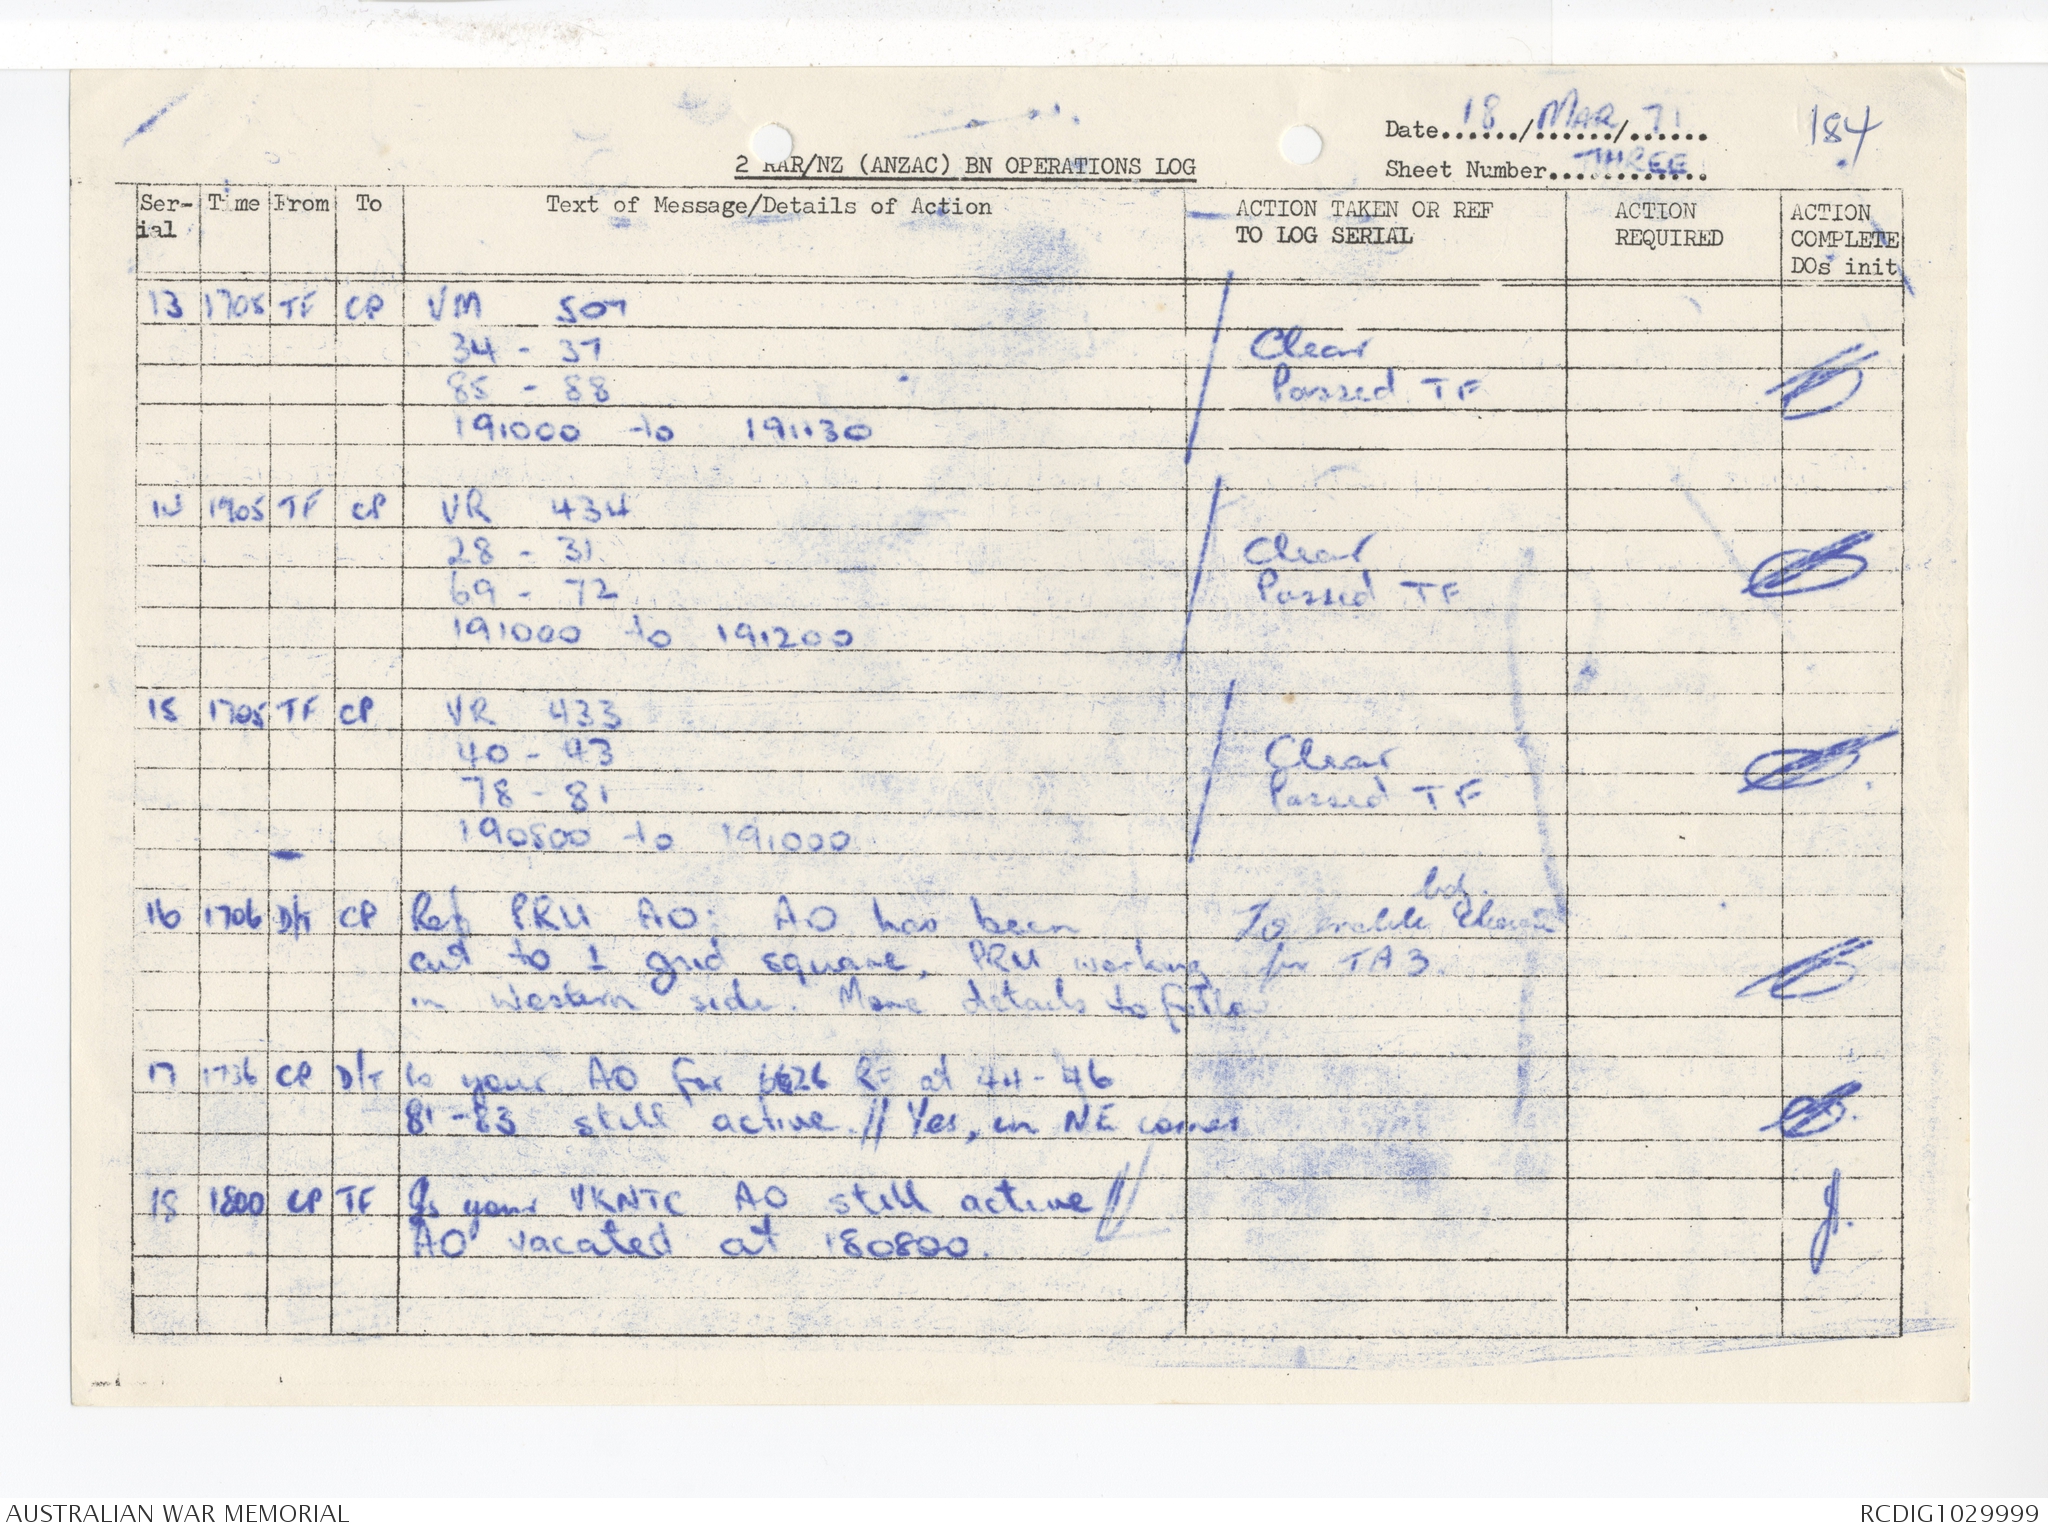 Date 18 / MAR / 71
184
2 RAR/NZ (ANZAC) BN OPERATIONS LOG
Sheet Number THREE
Ser-ial Time From To Text of Message/Details of Action ACTION TAKEN OR REF TO LOG SERIAL ACTION REQUIRED ACTION COMPLETE DOs init
13 1705 TF CP VM 507
34 - 37 Clear
85 - 88 Passed TF
191000 to 191130
14 1905 TF CP VR 434
28 - 31 Clear
69 - 72 Passed TF
191000 to 191200
15 1705 TF CP VR 433
40 - 43 Clear
78 - 81 Passed TF
190800 to 191000
16 1706 D/T CP Ref PRU AO: AO has been To enable
cut to 1 grid square, PRU working for TA3.
in Western side. More details to follow
17 1736 CP D/T Is your AO for 626 RF at 44-46
81-83 still active // Yes, in NE corner
18 1800 CP TF Is your VKNTC AO still active //
AO vacated at 180800.
AUSTRALIAN WAR MEMORIAL
RCDIG1029999